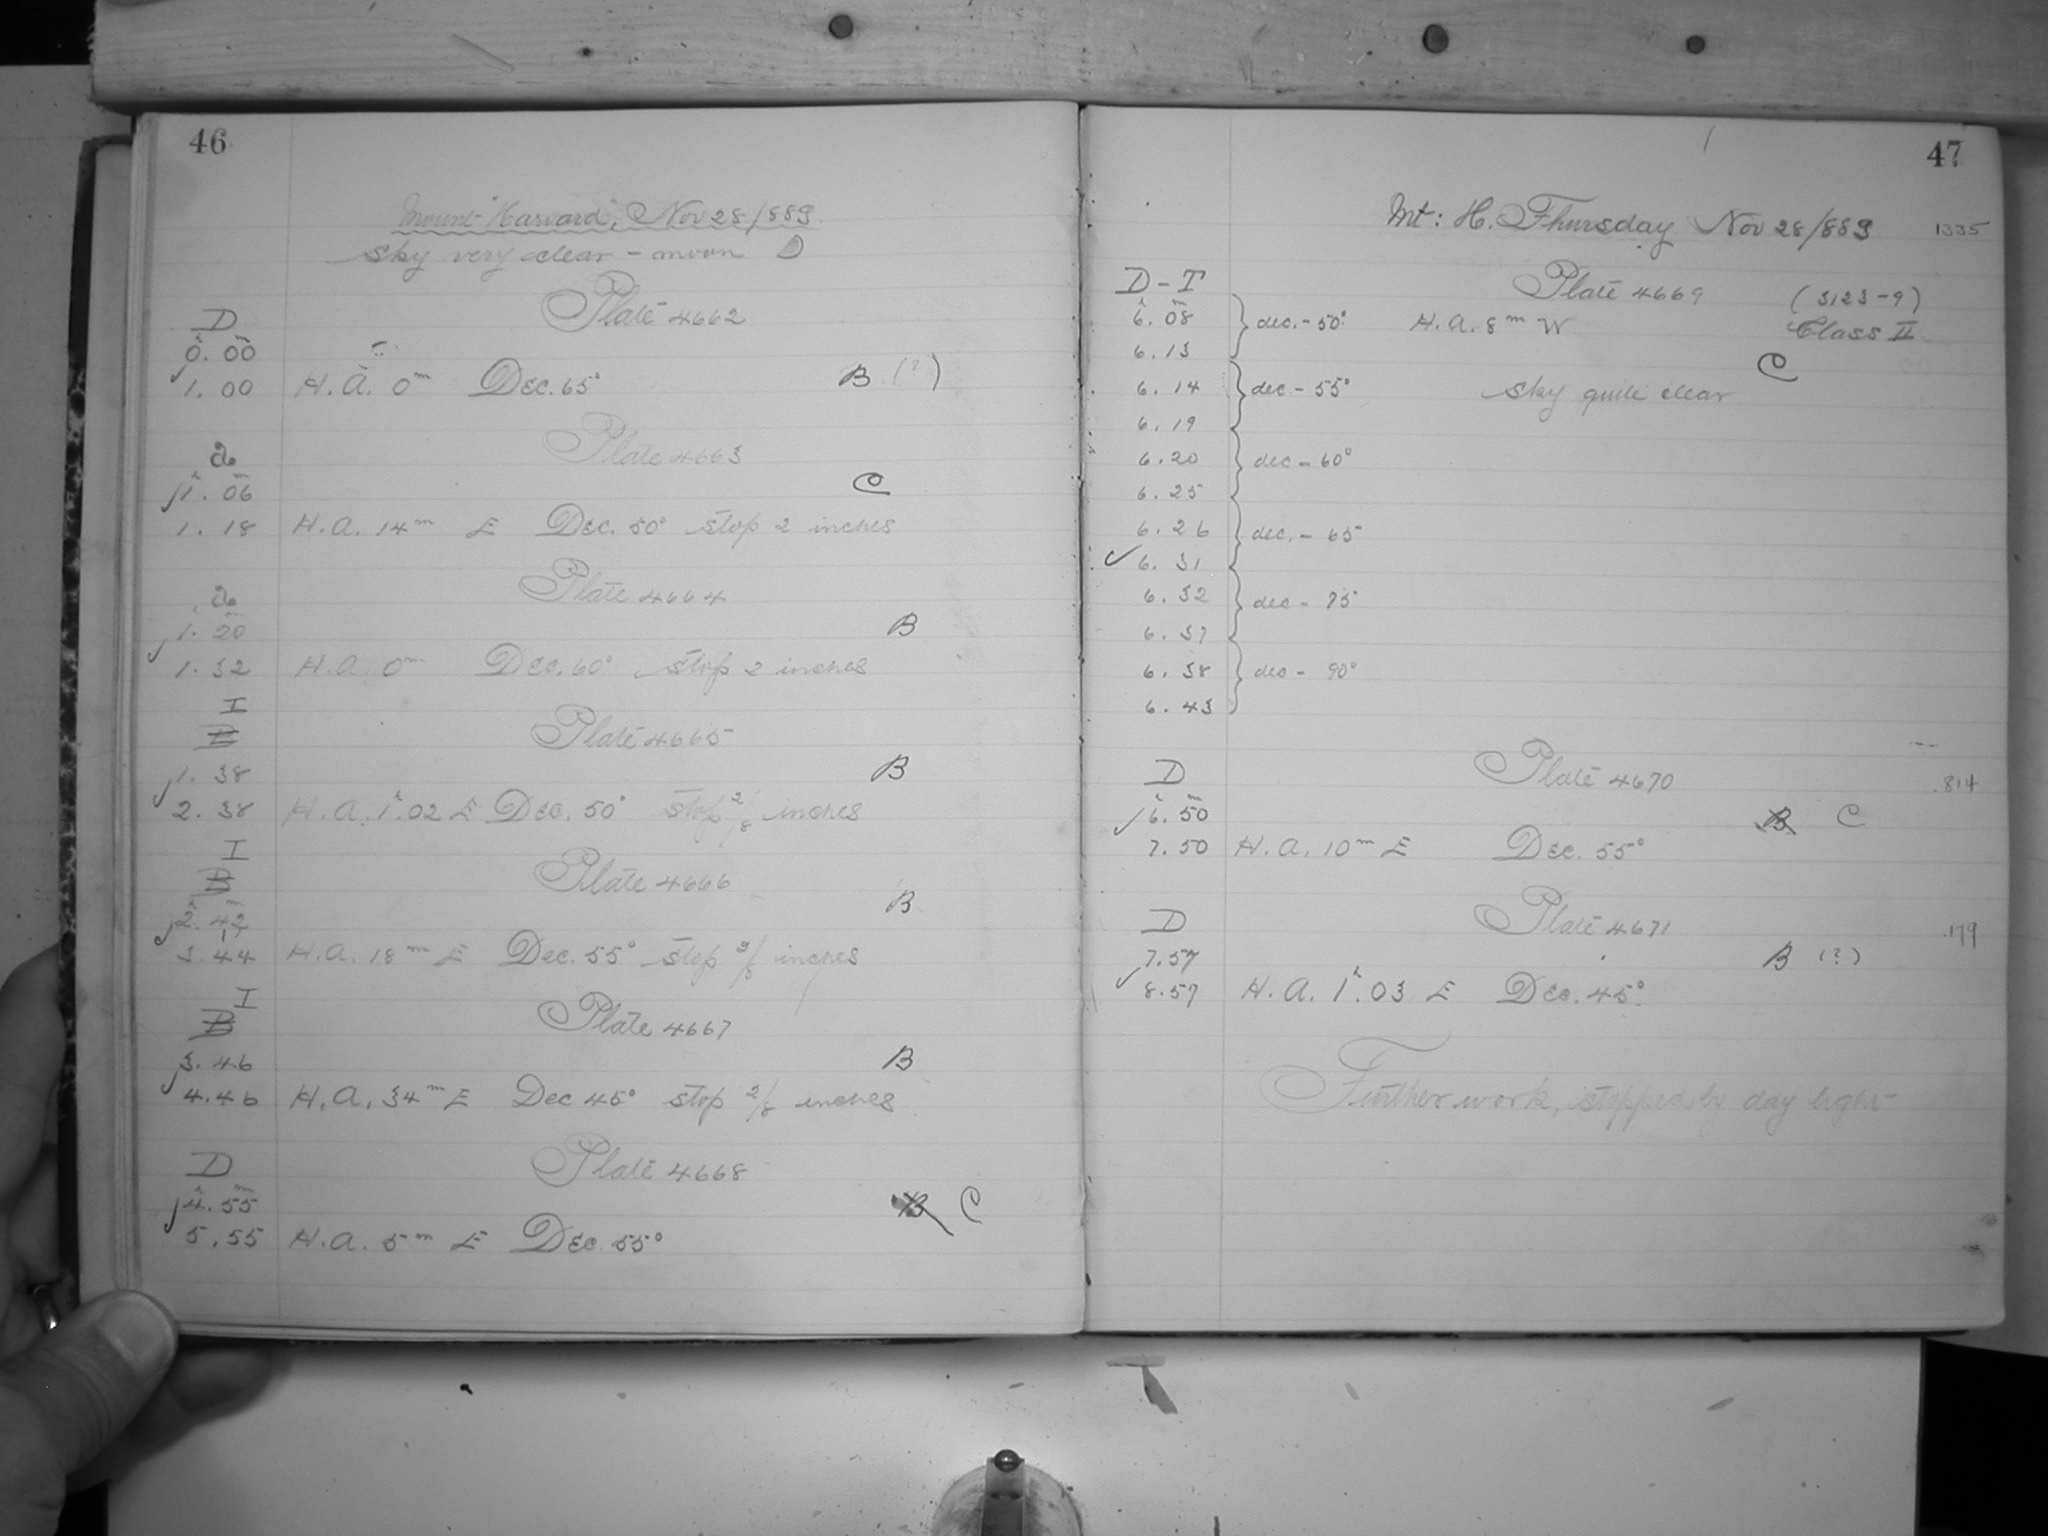 46
Mount "Harvard", Nov 28/889
Sky very clear - moon D
D Plate 4662
0.00
1.00 H.A. 0m Dec. 65° B (?)
a Plate 4663
1.06 C
1.18 H.A. 14m E Dec. 50° stop 2 inches
a Plate 4664
1.20 B
1.32 H.A. 0m Dec. 60° stop 2 inches
I
B Plate 4665
1.38 B
2.38 H.A. 1h.02 E Dec. 50° stop 2/8 inches
I
B Plate 4666
2.42 B
3.44 H.A. 18m E Dec. 55° stop 2/8 inches
I
B Plate 4667
3.46 B
4.46 H.A. 34m E Dec 45° stop 2/8 inches
D Plate 4668
4.55 B C
5.55 H.A. 5m E Dec. 55°
47
Mt: H. Thursday Nov 28/889 1335
D-T Plate 4669 (3123-9)
6.08 dec. - 50° H.A. 8m W Class II
6.13 C
6.14 dec - 55° Sky quite clear
6.19
6.20 dec - 60°
6.25
6.26 dec. - 65
6.31
6.32 dec - 75
6.37
6.38 dec - 90°
6.43
D Plate 4670 814
6.50 B C
7.50 H.A. 10m E Dec. 55°
D Plate 4671 179
7.57 B (?)
8.57 H.A. 1h.03 E Dec. 45°
Further work, stopped by day light-